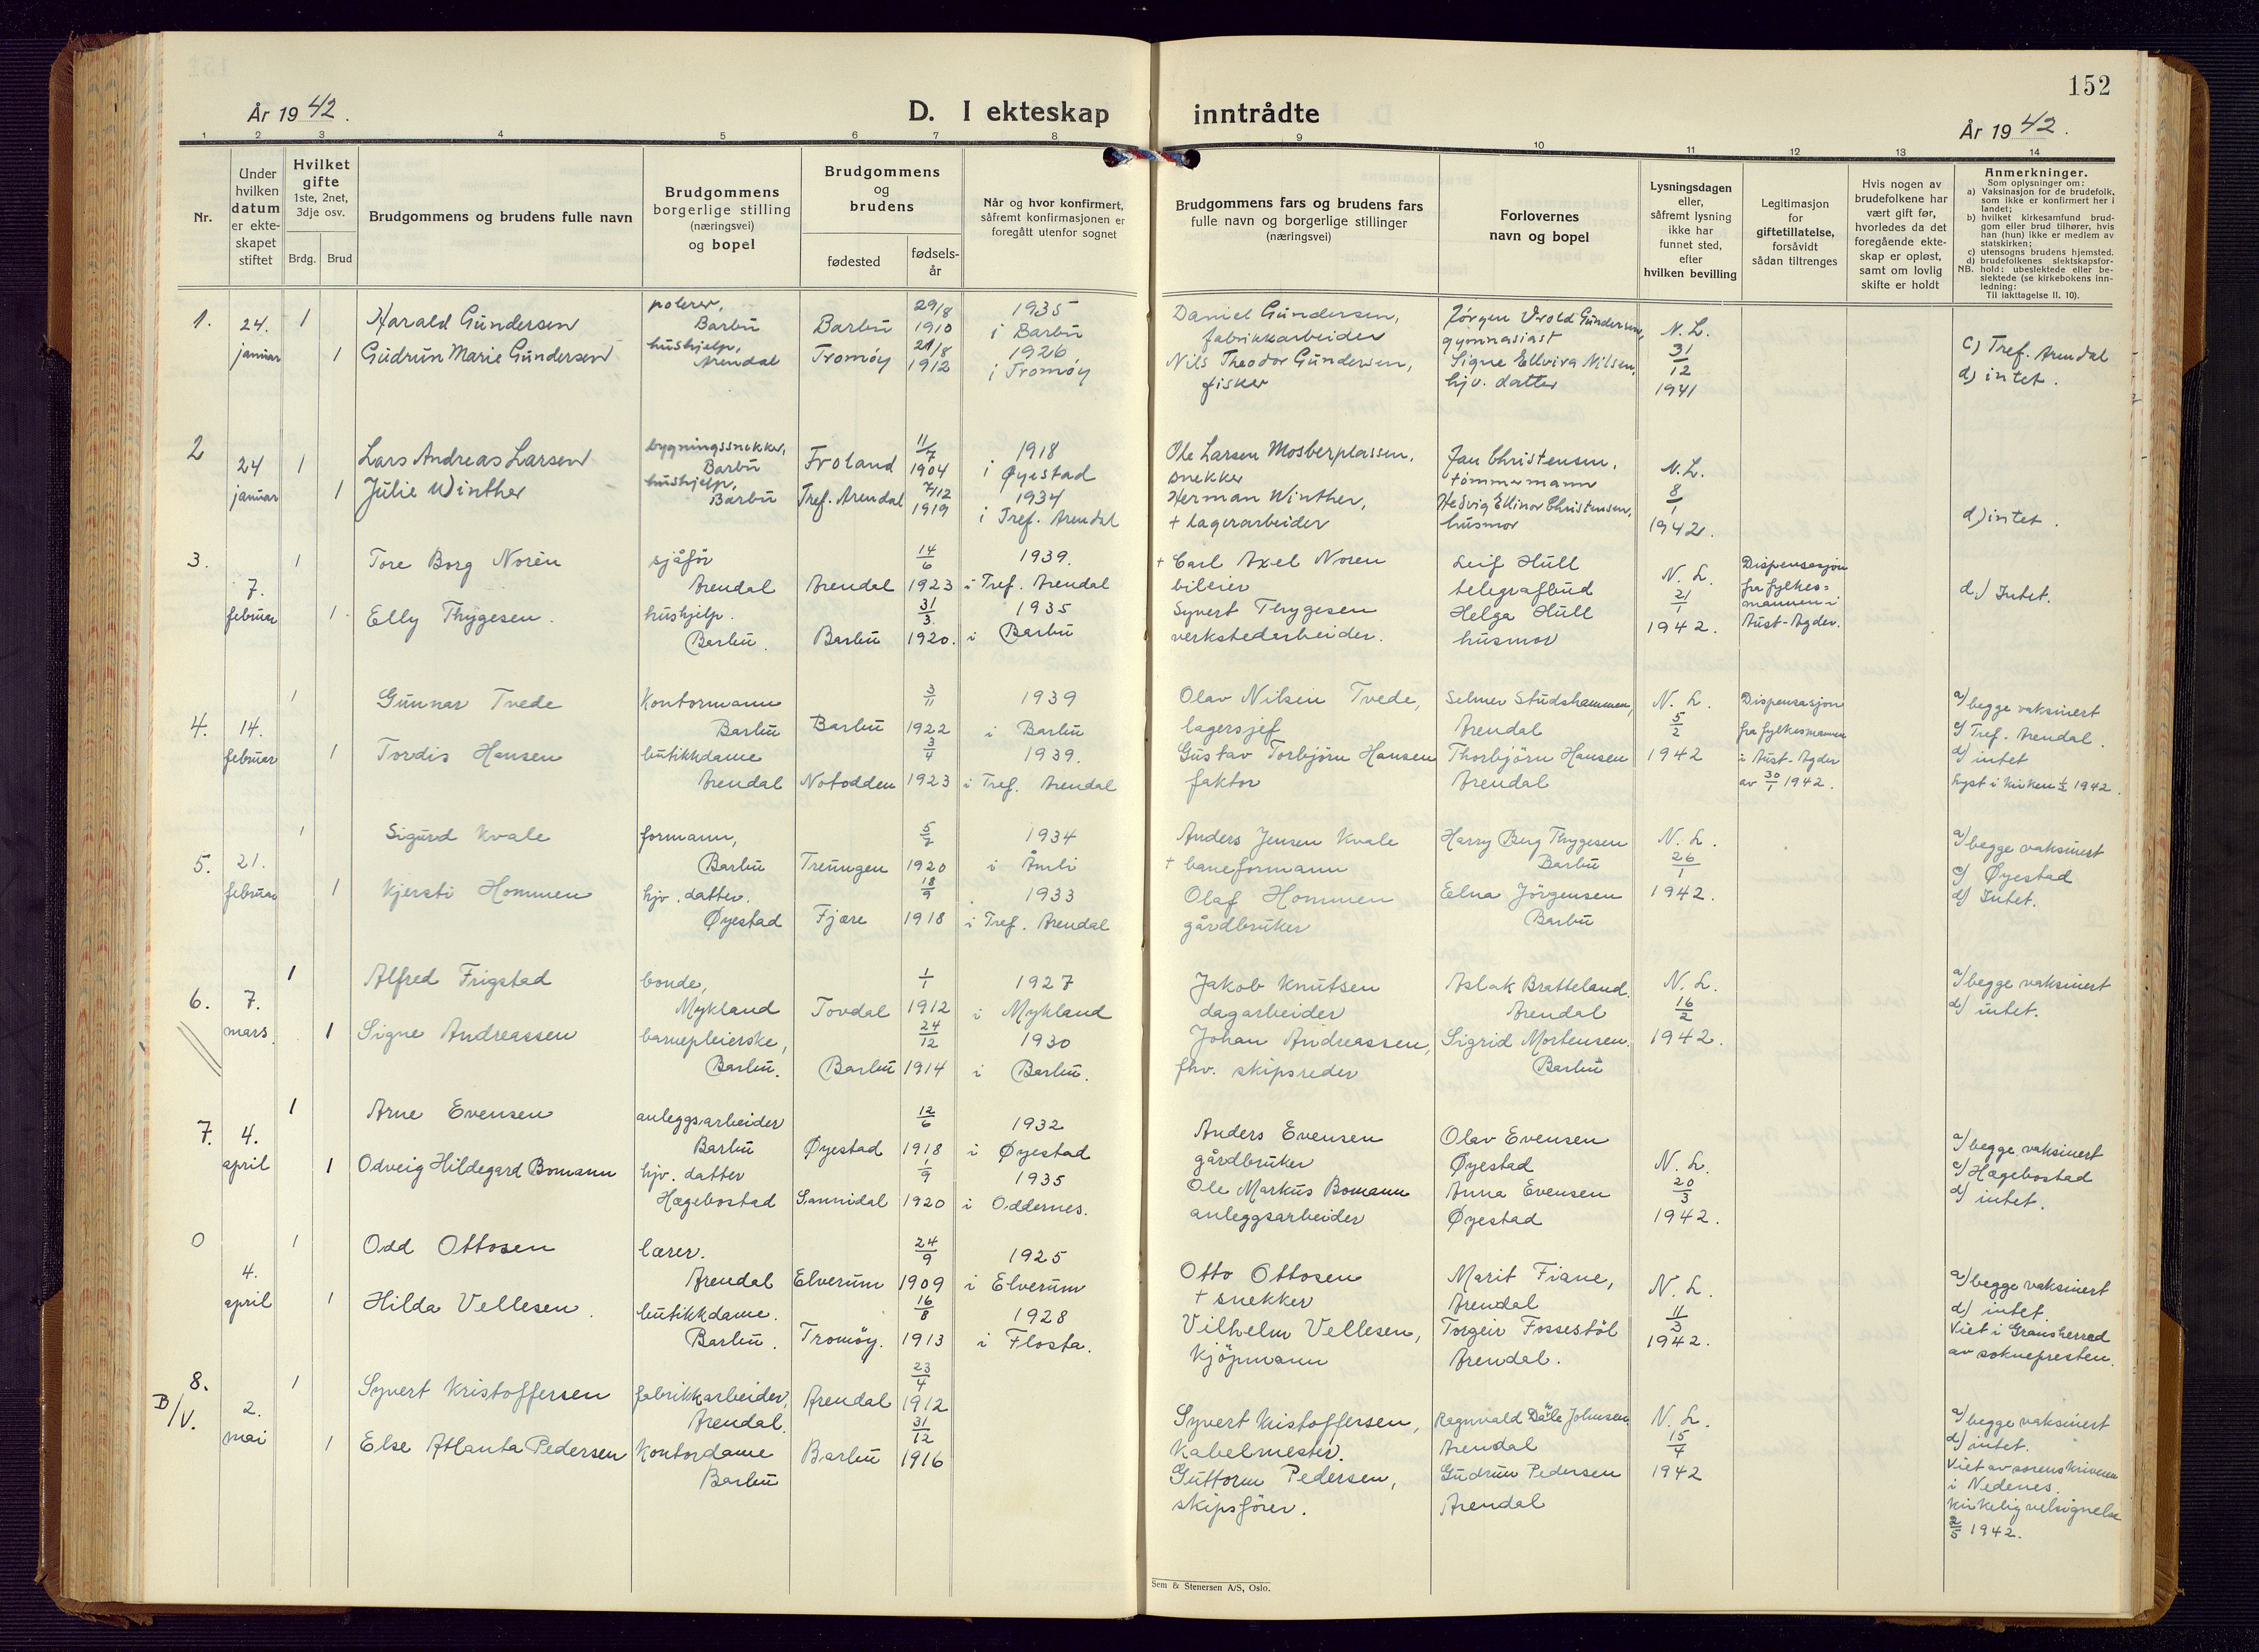 152
År 1942.
D. I ekteskap inntrådte
År 1942.
1 2 3 4 5 6 7 8 9 10 11 12 13 14
Nr.
Under hvilken datum er ekteskapet stiftet
Hvilket gifte 1ste, 2net, 3dje osv.
Brdg. Brud
Brudgommens og brudens fulle navn
Brudgommens borgerlige stilling (næringsvei) og bopel
Brudgommens og brudens
fødested
fødsels-år
Når og hvor konfirmert, såfremt konfirmasjonen er foregått utenfor sognet
Brudgommens fars og brudens fars fulle navn og borgerlige stillinger (næringsvei)
Forlovernes navn og bopel
Lysningsdagen eller, såfremt lysning ikke har funnet sted, efter hvilken bevilling
Legitimasjon for giftetillatelse, forsåvidt sådan tiltrenges
Hvis nogen av brudefolkene har vært gift før, hvorledes da det foregående ekteskap er opløst, samt om lovlig skifte er holdt
Anmerkninger.
Som oplysninger om:
a) Vaksinasjon for de brudefolk, som ikke er konfirmert her i landet;
b) hvilket kirkesamfund brudgom eller brud tilhører, hvis han (hun) ikke er medlem av statskirken;
c) utensogns brudens hjemsted.
d) brudefolkenes slektskapsfor-
NB. hold: ubeslektede eller beslektede (se kirkebokens innledning:
Til iakttagelse II. 10).
1. 24. januar 1 Harald Gundersen polerer, Barbu Barbu 29/8 1910 1935 i Barbu
1 Gudrun Marie Gundersen hushjelp, Arendal Tromøy 21/8 1912 1926 i Tromøy
Daniel Gundersen, fabrikkarbeider
Nils Theodor Gundersen, fisker
Jørgen Vrold Gundersen, gymnasiast
Signe Ellvira Nilsen, hjv. datter
N. L. 31/12 1941
c) Tref. Arendal
d) intet.
2 24 januar 1 Lars Andreas Larsen bygningssnekker, Barbu Froland 11/7 1904 1918 i Øyestad
1 Julie Winther hushjelp, Barbu Tref. Arendal 7/12 1919 1934 i Tref. Arendal
Ole Larsen Mosberplassen, snekker
Herman Winther, + lagerarbeider
Jan Christensen, tømmermann
Hedvig Ellinor Christensen, husmor
N. L. 8/1 1942.
d) intet.
3. 7. februar 1 Tore Borg Norèn sjåfør Arendal Arendal 14/6 1923 1939. i Tref. Arendal
1 Elly Thygesen. hushjelp. Barbu. Barbu 31/3 1920. 1935 i Barbu
+ Carl Axel Noren bileier
Syvert Thygesen verkstedarbeider.
Leif Hull telegrafbud
Helga Hull husmor
N. L. 21/1 1942.
Dispensasjon fra fylkesmannen i Aust-Agder.
d.) Intet.
4. 14. februar 1 Gunnar Tvede Kontormann Barbu Barbu 3/11 1922 1939 i Barbu
1 Tordis Hansen butikkdame Arendal Notodden 3/4 1923 1939. i Tref. Arendal
Olav Nilsen Tvede, lagersjef
Gustav Torbjörn Hansen faktor
Selmer Studshammen, Arendal
Thorbjörn Hansen Arendal
N. L. 5/2 1942
Dispensasjon fra fylkesmannen i Aust-Agder av 30/1 1942.
a) begge vaksinert
c) Tref. Arendal.
d) intet
Lyst i kirken 1942.
5. 21. februar 1 Sigurd Kvale formann, Barbu Treungen 1920 1934 i Åmli
1 Kjersti Hommen hjv. datter. Øyestad Fjære 18/9 1918 1933 i Tref. Arendal
Anders Jensen Kvale + baneformann
Olaf Hommen gårdbruker
Harry Berg Thygesen Barbu
Elna Jörgensen Barbu
N. L. 26/1 1942.
a) begge vaksinert
c) Øyestad
d) Intet.
6. 7. mars. 1 Alfred Frigstad bonde, Mykland Tovdal 1/1 1912 1927 i Mykland
1 Signe Andreassen barnepleierske, Barbu. Barbu 24/12 1914 1930 i Barbu.
Jakob Knutsen dagarbeider
Johan Andreassen, fhv. skipsreder
Aslak Bratteland. Arendal
Sigrid Mortensen. Barbu
N. L. 16/2 1942.
a) begge vaksinert
d) intet.
7. 4. april 1 Arne Evensen anleggsarbeider Barbu Øyestad 12/6 1918 1932 i Øyestad
1 Odveig Hildegard Bomann hjv. datter Hægebostad Sannidal 1/9 1920 1935 i Oddernes.
Anders Evensen gårdbruker
Ole Markus Bomann anleggsarbeider
Olav Evensen Øyestad
Anna Evensen Øyestad
N. L. 20/3 1942.
a) begge vaksinert
c) Hægebostad
d) intet.
0 4. april 1 Odd Ottosen lærer. Arendal Elverum 24/9 1909 1925 i Elverum
1 Hilda Vellesen. butikkdame. Barbu. Tromöy. 16/8 1913 1928 i Flosta.
Otto Ottosen + snekker
Vilhelm Vellesen, kjöpmann
Marit Fiane, Arendal
Torgeir Fossestöl Arendal.
N. L. 11/3 1942.
a) begge vaksinert
d) intet.
Viet i Gransherred av soknepresten.
8. B/V. 2. mai 1 Syvert Kristoffersen fabrikkarbeider, Arendal. Arendal 23/4 1912
1 Else Atlanta Pedersen Kontordame Barbu Barbu 31/12 1916
Syvert Kristoffersen, Kabelmester.
Guttorm Pedersen, skipsförer.
Ragnvald Dåle Johnsen, Arendal
Gudrun Pedersen Arendal
N. L. 15/4 1942
a) begge vaksinert
d) intet.
Viet av sorenskriveren i Nedenes.
kirkelig velsignelse 2/5 1942.
Sem & Stenersen A/S, Oslo.